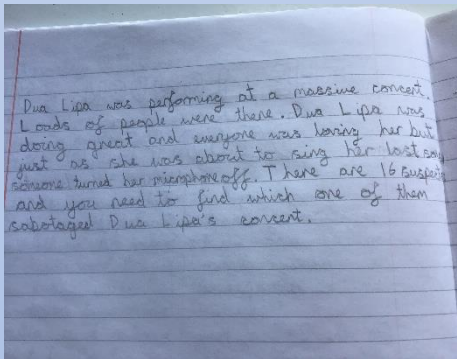 Dua Lipa was performing at a massive concert.
Loads of people were there. Dua Lipa was
doing great and everyone was loving her but
just as she was about to sing her last song
someone turned her microphone off. There are 16 suspects
and you need to find which one of them
sabotaged Dua Lipa's concert.